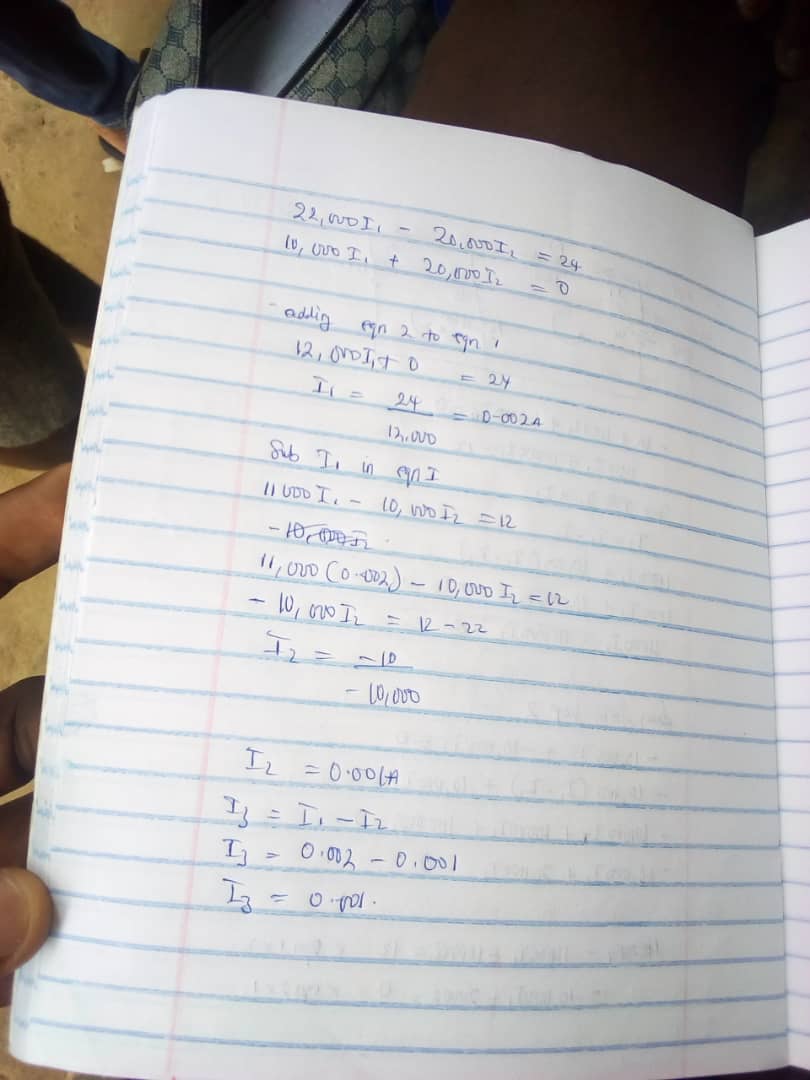 22,000I₁ - 20,000I₂ = 24
10,000 I₁ + 20,000I₂ = 0
- addig eqn 2 to eqn 1
12,000I₁ + 0 = 24
I₁ = 24 / 12,000 = 0.002A
Sub I₁ in eqn I
11000 I₁ - 10,000 I₂ = 12
- 10,000I₂
11,000 (0.002) - 10,000 I₂ = 12
- 10,000 I₂ = 12 - 22
I₂ = -10
- 10,000
I₂ = 0.001A
I₃ = I₁ - I₂
I₃ = 0.002 - 0.001
I₃ = 0.001.